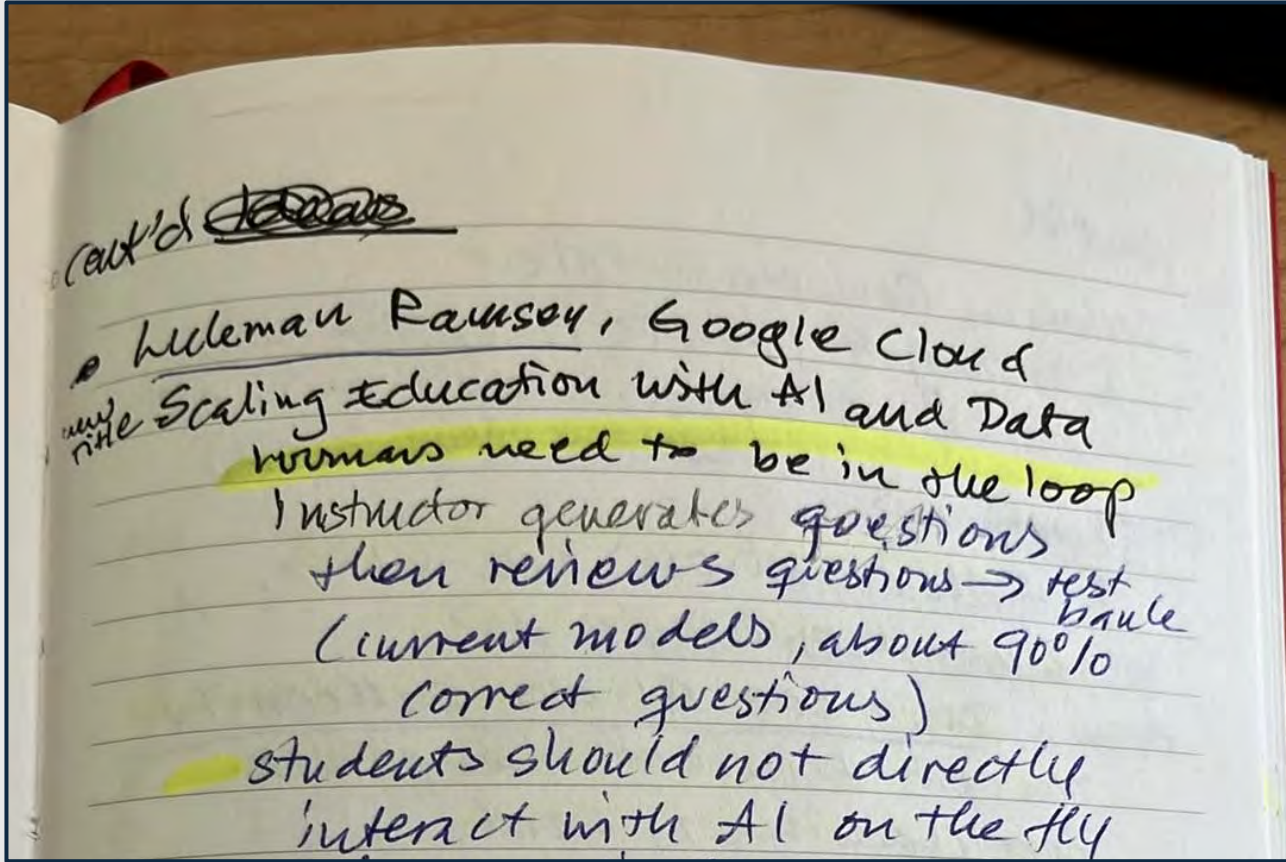 cont'd
Ramsey, Google Cloud
new title Scaling Education with AI and Data
humans need to be in the loop
Instructor generates questions
then reviews questions → test bank
(current models, about 90%
correct questions)
students should not directly
interact with AI on the fly